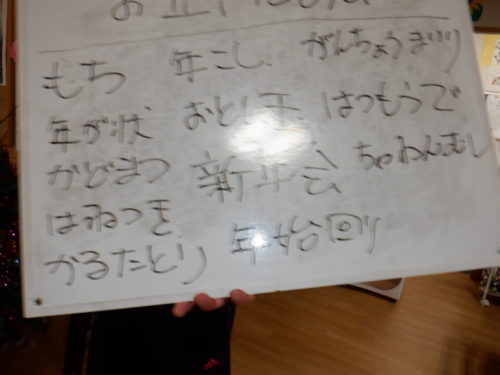 もち 年こし がんちょうまいり
年が状 おとし玉 はつもうで
かどまつ 新年会 ちゃわんむし
はねつき
かるたとり 年始回り